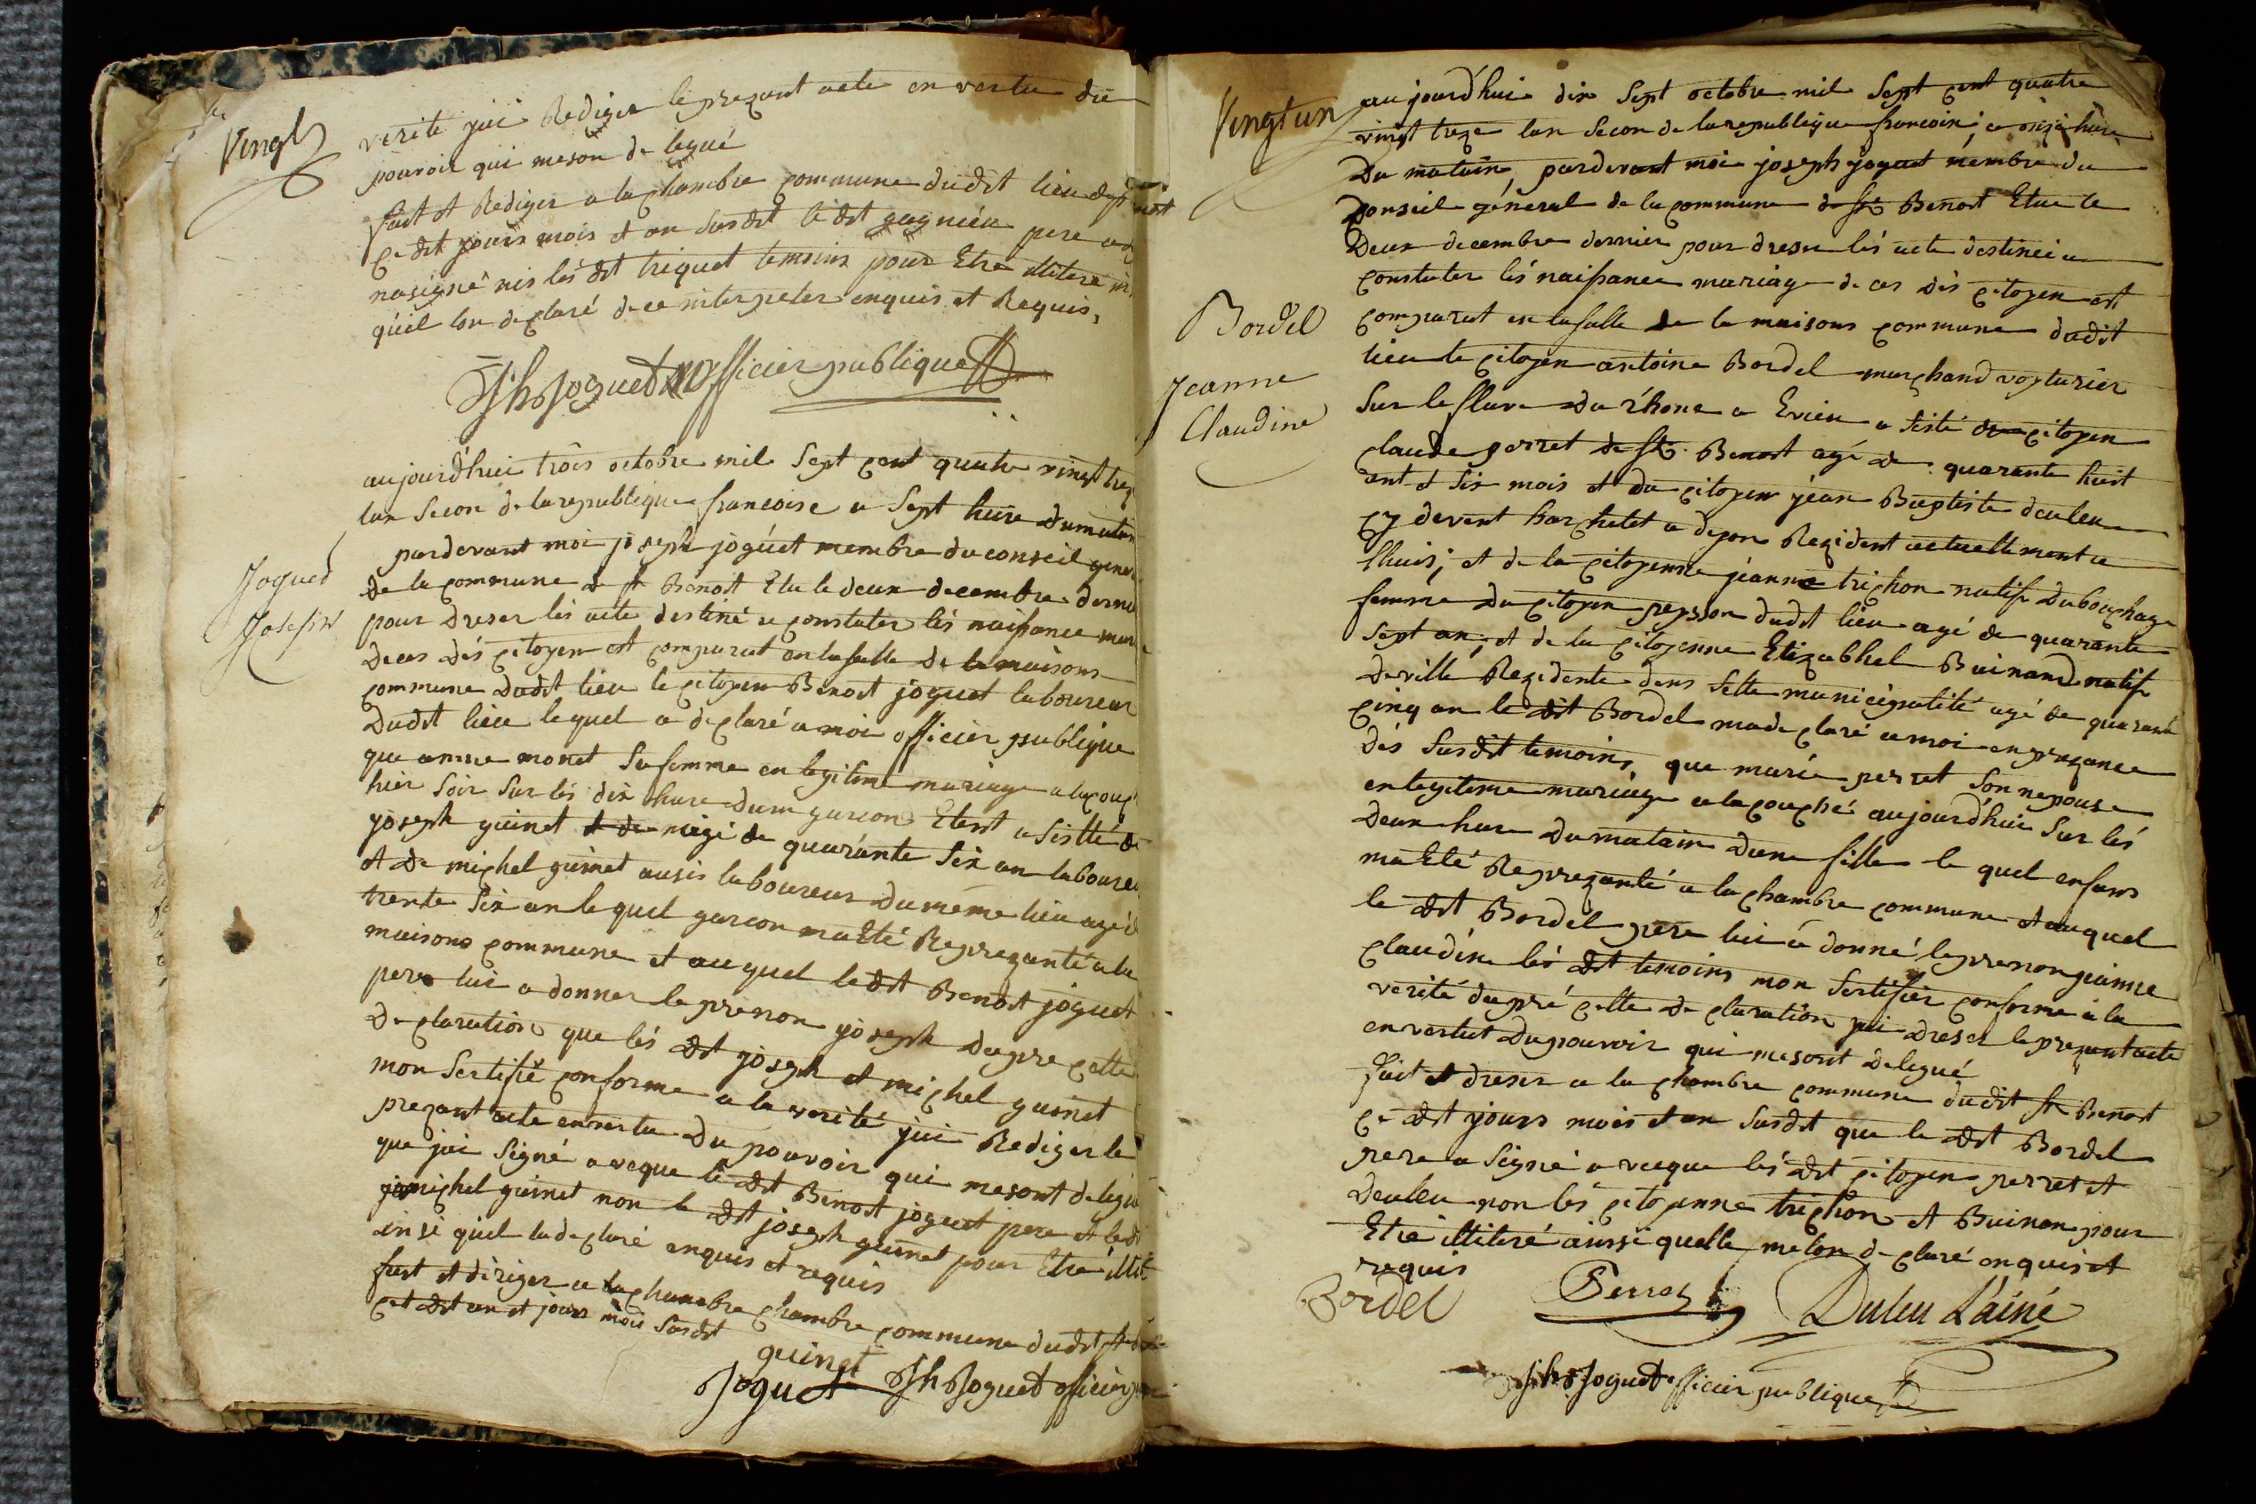 Vingt
verite jai Rediger le prezant acte en vertu du
pouvoir qui meson delegué
fait et Rediger a la chambre commune dudit lieu de st
ce dit jours mois et an susdit le dit gagnieu pere
nasigné nis les dit triquet temoins pour Etre illitere
quil lon declaré de ce interpeler enquis et Requis,
Jh Joguet officier publique
Joguet
Josefhe
aujourd'hui trois octobre mil sept cent quatre vingt trez
lan secon de la republique francoise a sept hure du matin
pardevant moi joseph joguet membre du conseil gener
de la commune de st Benoit Elu le deux decembre dernie
pour dreser lés acte destiné a constater lés naissance mari
de ces dés citoyen est comparut en la salle de la maisons
commune dudit lieu le citoyen Benoit joguet laboureur
dudit lieu lequel a declaré a moi officier publique
que anne monet sa femme en legitime mariage a la couch
hier soir sur lés dix hure dum garcon Etant a sistté de
joseph guinet et de nagé de quarante six an laboureu
et de michel guinet ausis laboureur du méme lieu agé d
trente six an le quel garcon ma Eté Reprezanté a la
maisons commune et au quel le dit Benoit joguet
pere lui a donner le prenon joseph dapre cette
declaration que lés dit joseph et michel guinet
mon sertifié conforme a la verité jai Rediger le
prezant acte en vertu du pouvoir qui mesont delegué
que jai signé aveque le dit Benoit joguet pere et le dit
michel guinet non le dit joseph guinet pour Etre illit
ainsi quil la declaré enquis et requis
fait et diriger a la chambre chambre commune dudit st
cet dit an et jours mois susdit
guinet
Joguet Jh Joguet officier
Vingt un
aujourd'hui dix sept octobre mil sept cent quatre
vingt treze lan secon de la republique francoin; a onze hure
Du matain, pardevant moi joseph joguet membre du
conseil général de la commune de st Benoit Elue le
Deux decembre dernier pour dreser lés acte destinéi a
constater lés naissance mariage de ces dés citoyen est
comparut en la salle de la maisons commune dudit
lieu le citoyen antoine Bordel marchand voyturier
Sur le fluve du rhone a Evieu a sisté du citoyen
claude perret de st Benoit agé de quarante huit
ant et six mois et du citoyen jean Baptiste deuleu
cy devant a dijon Rezident actuellement a
lhuis; et de la citoyenne jéanne trichon natif du bouchage
femme du citoyen peysson dudit lieu agé de quarante
sept an; et de la citoyenne Elizabhel Buinand natif
deville Rezidente dans sette municipalité agé de quarante
cinq an le dit Bordel ma declaré a moi en prezance
dés susdit temoins, que marie perret son nepouse
en legitime mariage a la couché aujourd'hui sur lés
deux hure du matain dune fille le quel enfans
ma Eté Reprezanté a la chambre commune et auquel
le dit Bordel pere lui a donné le prenon jeanne
claudine lés dit temoins mon sertifier conforme a la
verité daprè cette declaration jai dreser le prezant acte
en vertut du pouvoir qui mesont delegué
fait et dreser a la chambre commune du dit st Benoit
ce dit jours mois et an susdit que le dit Bordel
pere a signé avecque lés dit citoyen perret et
deuleu non lés citoyenne trichon et Buinan pour
Etre illiteré ainsi quelle me lon declaré enquis et
requis
Bordel
Jeanne
Claudine
Bordel Perret Duleu Láiné
Jh Joguet officier publique